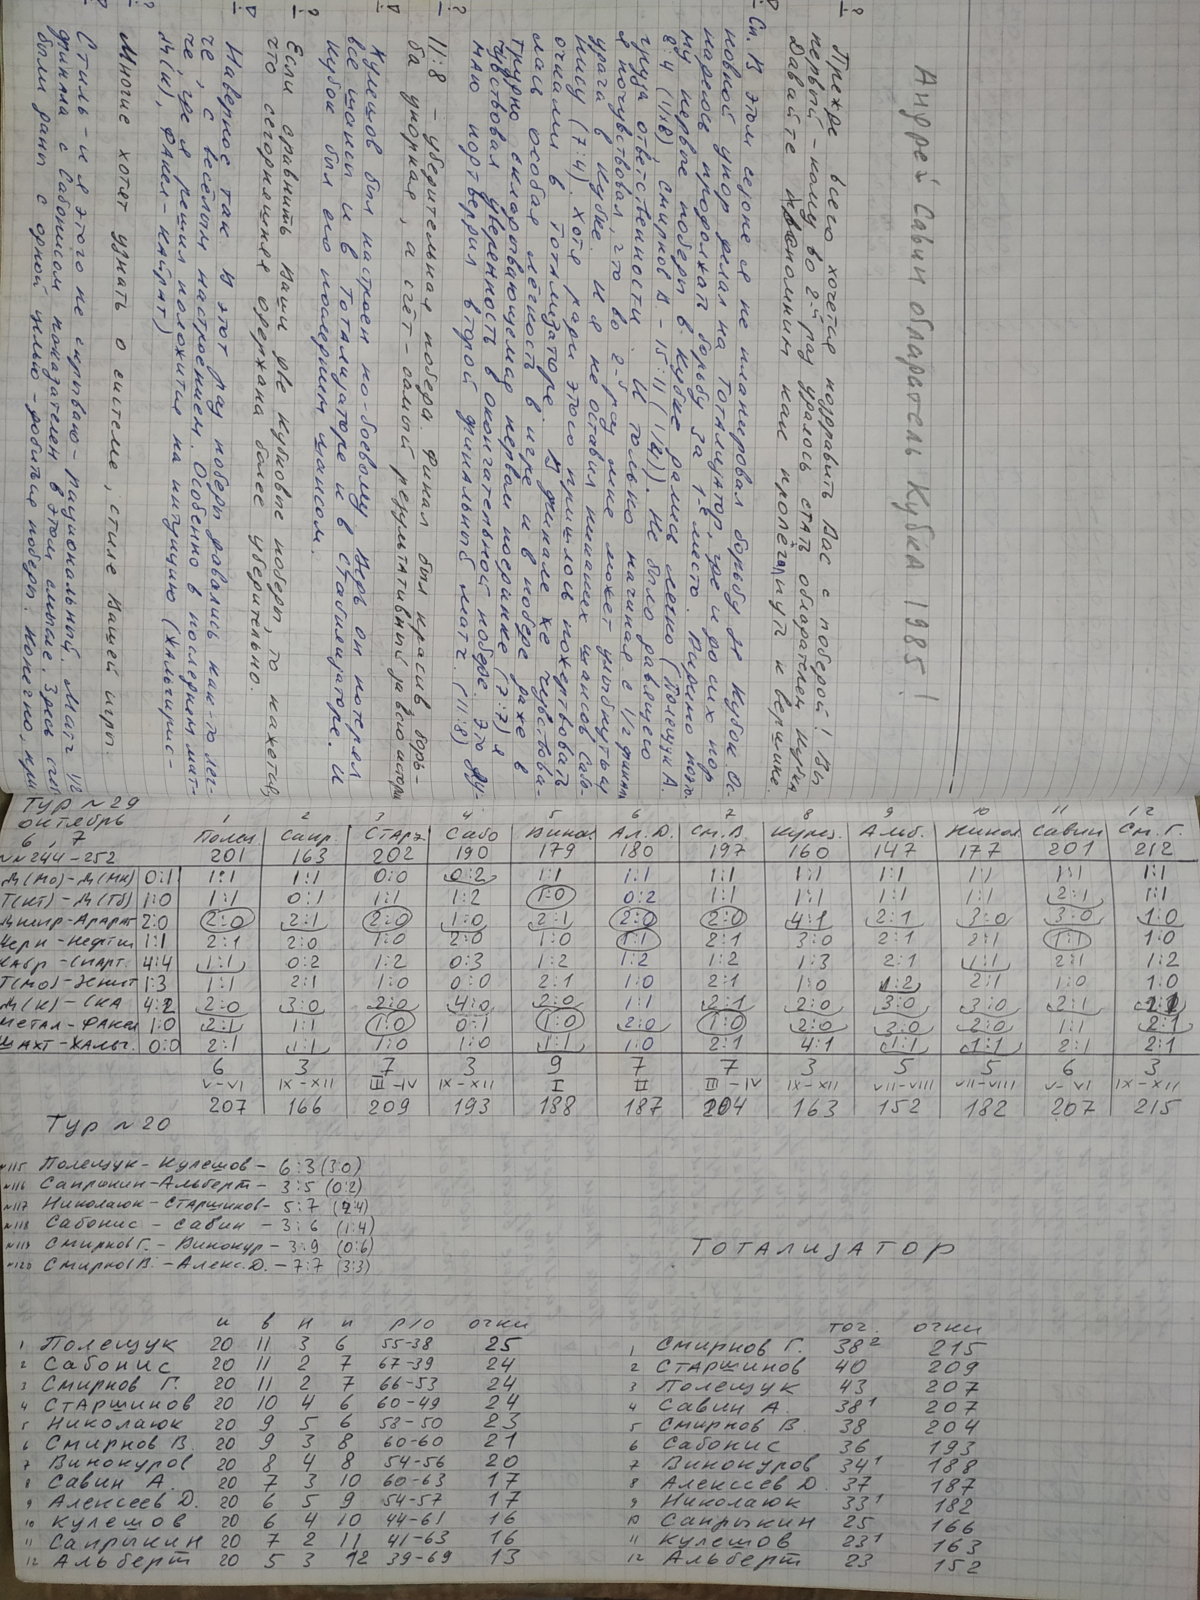 Андрей Савин обладатель Кубка 1985!
Прежде всего хочется поздравить Вас с победой! Вы
первый - кому во 2-й раз удалось стать обладателем Кубка.
Давайте вспомним как пролёгал путь к вершине.
Сп. В этом сезоне я не планировал борьбу за Кубок. Ос-
новной упор делал на Тотализатор, где и до сих пор
надеюсь продолжать борьбу за 1-е место. Видимо поэто-
му первые победы в Кубке дались легко (Полещук А.
8:4 (1/8), Смирков В. - 15:11 (1/4)). Не было давящего
груза ответственности. И только начиная с 1/2 финала
я почувствовал, что во 2-й раз мне может улыбнуться
удача в Кубке. И я не оставил никаких шансов Сабо-
нису (7:4). Хотя ради этого пришлось пожертвовать
очками в Тотализаторе. В финале же чувствова-
лась особая лёгкость в игре и в победе даже в
трудно складывающемся первом поединке (7:7) я
чувствовал уверенность в окончательной победе. Это ду-
маю подтвердил второй финальный матч. (11:8)
11:8 - убедительная победа. Финал был красив борь-
ба упорная, а счёт - самый результативный за всю истори
Кулешов был настроен по-боевому, ведь он потерял
все шансы и в Тотализаторе и в Стабилизаторе. И
Кубок был его последним шансом.
Если сравнить Ваши две кубковые победы, то кажется,
что сегодняшняя одержана более убедительно.
Наверное так. В этот раз победы давались как-то лег-
че, с весёлым настроением. Особенно в последнем мат-
че, где я решил положится на интуицию (Жальгирис -
Д(К), Факел - Кайрат)
Многие хотят узнать о системе, стиле Вашей игры.
Стиль - и я этого не скрываю - рациональный. Матч 1/2
финала с Сабонисом показателен в этом смысле. Здесь счё
были даны с одной целью - добиться победы. Конечно, при
Тур №29
октябрь
6, 7
№№244-252
1 2 3 4 5 6 7 8 9 10 11 12
Полещ Сапр. Старш. Сабо Винок. Ал.Д. См.В. Кулеш. Альб. Никол Савин См.Г.
201 163 202 190 179 180 197 160 147 177 201 212
Д(Мо)-Д(Мн) 0:1 1:1 1:1 0:0 0:2 1:1 1:1 1:1 1:1 1:1 1:1 1:1 1:1
Т(Кт)-Д(Тб) 1:0 1:1 0:1 1:1 1:2 1:0 0:2 1:1 1:1 1:1 1:1 2:1 1:1
Днепр-Арарат 2:0 2:0 2:1 2:0 1:0 2:1 2:0 2:0 4:1 2:1 3:0 3:0 1:0
Черн-Нефтчи 1:1 2:1 2:0 1:0 2:0 1:0 1:1 2:1 3:0 2:1 2:1 1:1 1:0
Кайр-Спарт. 4:4 1:1 0:2 1:2 0:3 1:2 1:2 1:2 1:3 2:1 1:1 2:1 1:2
Т(Мо)-Зенит 1:3 1:1 2:1 1:0 0:0 2:1 1:0 2:1 1:0 1:2 2:1 1:0 1:0
Д(К)-СКА 4:2 2:0 3:0 2:0 4:0 2:0 1:1 2:1 2:0 3:0 3:0 2:1
Метал-Факел 1:0 2:1 1:1 1:0 0:1 1:0 2:0 1:0 2:0 3:0 2:0 1:1 2:1
Шахт-Жальг. 0:0 2:1 1:1 1:0 1:0 1:1 1:0 2:1 4:1 1:1 1:1 2:1 2:1
6 3 7 3 9 7 7 3 5 5 6 3
V-VI IX-XII III-IV IX-XII I II III-IV IX-XII VII-VIII VII-VIII V-VI IX-XII
207 166 209 193 188 187 204 163 152 182 207 215
Тур №20
№115 Полещук - Кулешов - 6:3 (3:0)
№116 Сапрыкин - Альберт - 3:5 (0:2)
№117 Николаюк - Старшинов - 5:7 (2:4)
№118 Сабонис - Савин - 3:6 (1:4)
№119 Смирнов Г. - Винокур - 3:9 (0:6)
№120 Смирнов В. - Алекс.Д. - 7:7 (3:3)
и в н п р/о очки
1 Полещук 20 11 3 6 55-38 25
2 Сабонис 20 11 2 7 67-39 24
3 Смирнов Г. 20 11 2 7 66-53 24
4 Старшинов 20 10 4 6 60-49 24
5 Николаюк 20 9 5 6 53-50 23
6 Смирнов В. 20 9 3 8 60-60 21
7 Винокуров 20 8 4 8 54-56 20
8 Савин А. 20 7 3 10 60-63 17
9 Алексеев Д. 20 6 5 9 54-57 17
10 Кулешов 20 6 4 10 44-61 16
11 Сапрыкин 20 7 2 11 41-63 16
12 Альберт 20 5 3 12 39-69 13
Тотализатор
точ. очки
1 Смирнов Г. 38² 215
2 Старшинов 40 209
3 Полещук 43 207
4 Савин А. 38¹ 207
5 Смирнов В. 38 204
6 Сабонис 36 193
7 Винокуров 34¹ 188
8 Алексеев Д. 37 187
9 Николаюк 33¹ 182
10 Сапрыкин 25 166
11 Кулешов 23¹ 163
12 Альберт 23 152